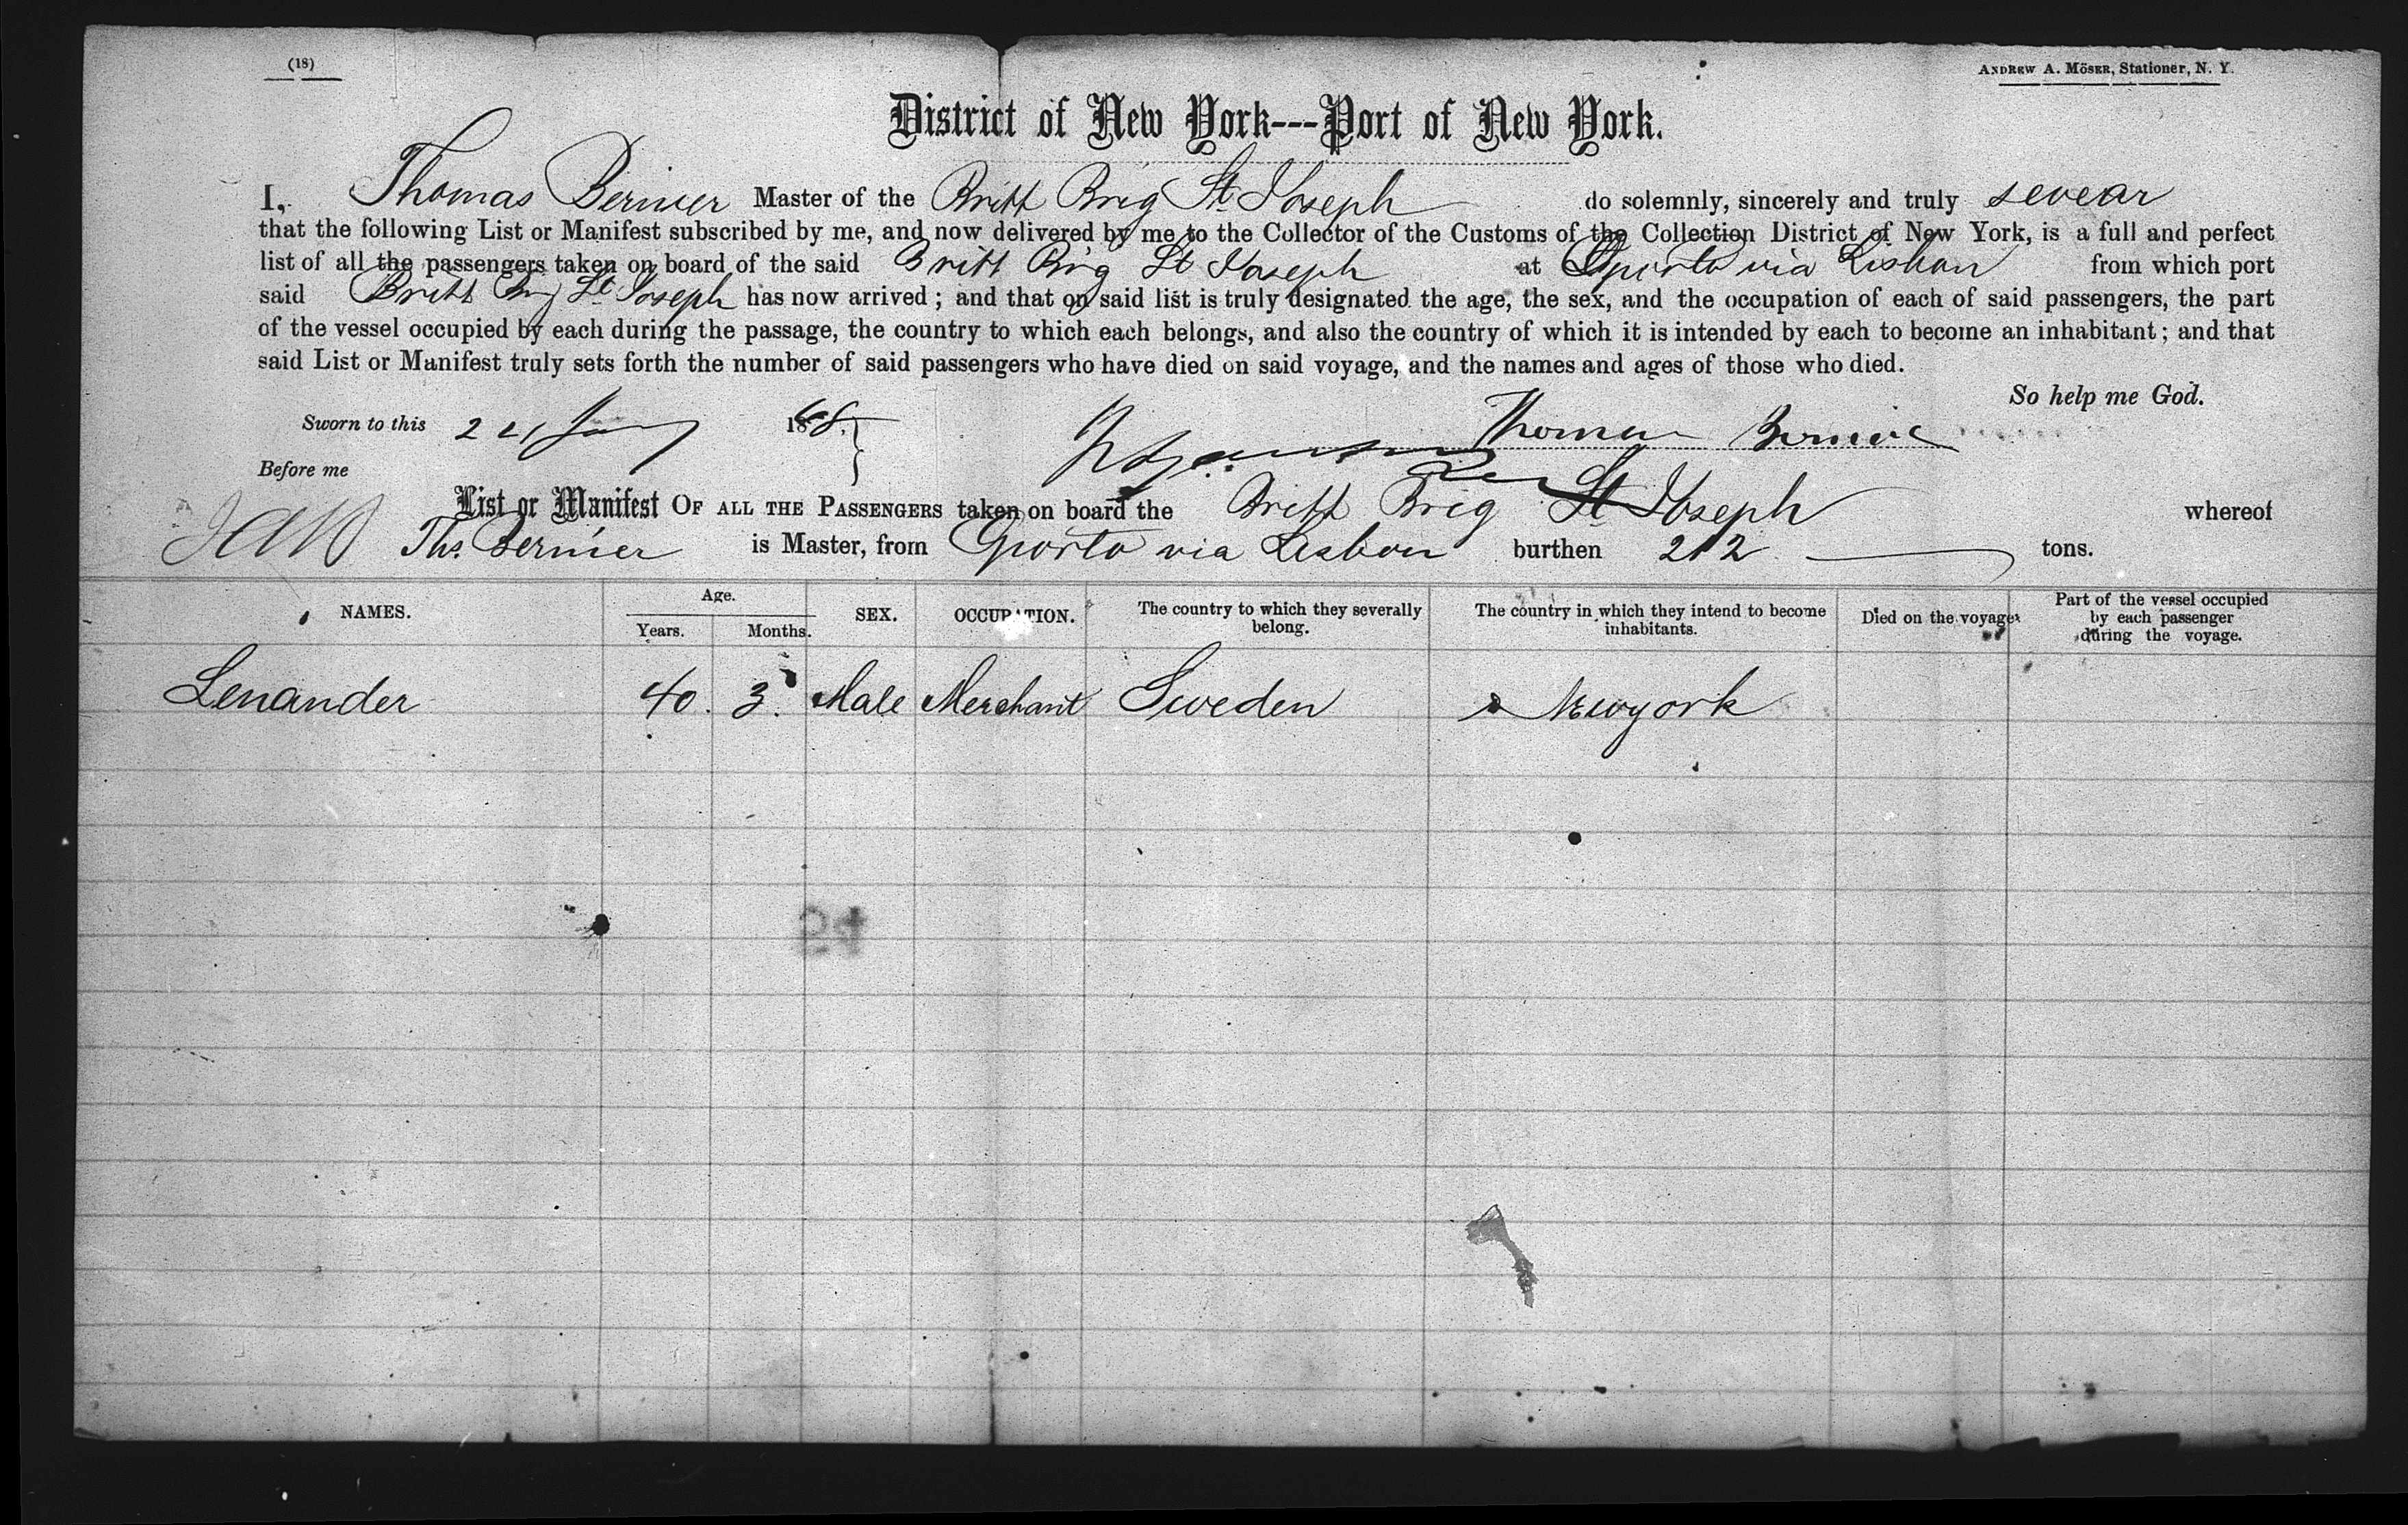 (18)
ANDREW A. MÖSER, Stationer, N. Y.
District of New York---Port of New York.
I, Thomas Bernier Master of the Britt Brig St Joseph do solemnly, sincerely and truly swear
that the following List or Manifest subscribed by me, and now delivered by me to the Collector of the Customs of the Collection District of New York, is a full and perfect
list of all the passengers taken on board of the said Britt Brig St Joseph at Oporto via Lisbon from which port
said Britt Brig St Joseph has now arrived; and that on said list is truly designated the age, the sex, and the occupation of each of said passengers, the part
of the vessel occupied by each during the passage, the country to which each belongs, and also the country of which it is intended by each to become an inhabitant; and that
said List or Manifest truly sets forth the number of said passengers who have died on said voyage, and the names and ages of those who died.
So help me God.
Sworn to this 1868. Thomas Bernier
Before me
List or Manifest OF ALL THE PASSENGERS taken on board the Britt Brig St Joseph whereof
Ths. Bernier is Master, from Oporto via Lisbon burthen 212 tons.
NAMES. Age. Years. Months. SEX. OCCUPATION. The country to which they severally belong. The country in which they intend to become inhabitants. Died on the voyage. Part of the vessel occupied by each passenger during the voyage.
Lenander 40. 3. Male Merchant Sweden Newyork
24